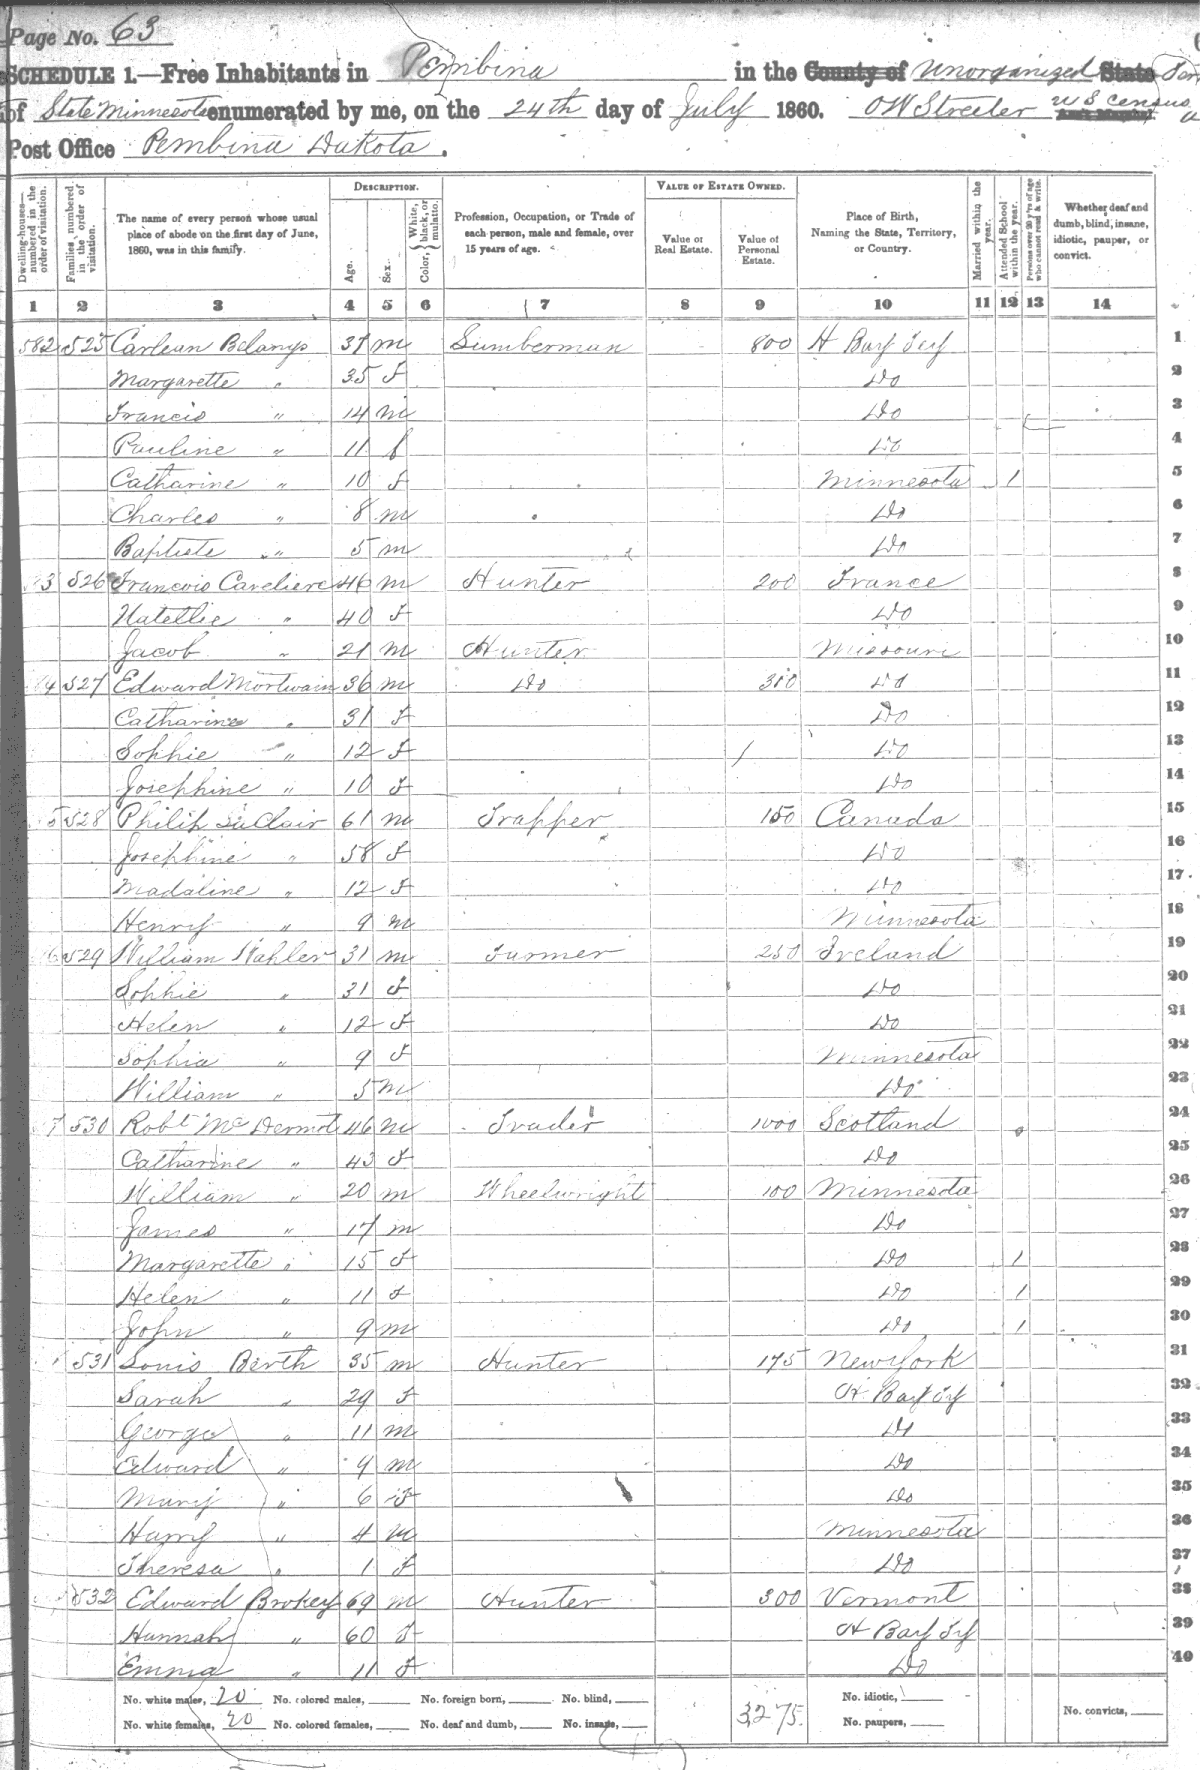 Page No. 63
SCHEDULE 1.—Free Inhabitants in Pembina in the County of Unorganized State Ter
of State Minnesota enumerated by me, on the 24th day of July 1860. OW Streeter U S Census
Post Office Pembina Dakota.
Dwelling-houses—numbered in the order of visitation. Families numbered in the order of visitation. The name of every person whose usual place of abode on the first day of June, 1860, was in this family. DESCRIPTION. Age. Sex. Color, White, black, or mulatto. Profession, Occupation, or Trade of each person, male and female, over 15 years of age. VALUE OF ESTATE OWNED. Value of Real Estate. Value of Personal Estate. Place of Birth, Naming the State, Territory, or Country. Married within the year. Attended School within the year. Persons over 20 y'rs of age who cannot read & write. Whether deaf and dumb, blind, insane, idiotic, pauper, or convict.
1 2 3 4 5 6 7 8 9 10 11 12 13 14
582 525 Carlean Belangs 37 m Lumberman 800 H Bay Ter 1
Margarette " 35 f Do 2
Francis " 14 m Do 3
Pauline " 11 f Do 4
Catharine " 10 f Minnesota 1 5
Charles " 8 m Do 6
Baptiste " 5 m Do 7
3 526 Francois Caveliere 46 m Hunter 200 France 8
Natellie " 40 f Do 9
Jacob " 21 m Hunter Missouri 10
4 527 Edward Mortwain 36 m Do 300 Do 11
Catharine " 31 f Do 12
Sophie " 12 f Do 13
Josephine " 10 f Do 14
5 528 Philip LaClair 61 m Trapper 150 Canada 15
Josephine " 58 f Do 16
Madaline " 12 f Do 17
Henry " 9 m Minnesota 18
6 529 William Kahler 31 m Farmer 250 Ireland 19
Sophie " 31 f Do 20
Helen " 12 f Do 21
Sophia " 9 f Minnesota 22
William " 5 m Do 23
7 530 Robt McDermot 46 m Trader 1000 Scotland 24
Catharine " 43 f Do 25
William " 20 m Wheelwright 100 Minnesota 26
James " 17 m Do 27
Margarette " 15 f Do 1 28
Helen " 11 f Do 1 29
John " 9 m Do 1 30
531 Louis Berth 35 m Hunter 175 New York 31
Sarah " 29 f H Bay Ter 32
George " 11 m Do 33
Edward " 9 m Do 34
Mary " 6 f Do 35
Harry " 4 m Minnesota 36
Theresa " 1 f Do 37
532 Edward Brokey 69 m Hunter 300 Vermont 38
Hannah " 60 f H Bay Ter 39
Emma " 11 f Do 40
No. white males, 20 No. colored males, No. foreign born, No. blind, No. idiotic,
No. white females, 20 No. colored females, No. deaf and dumb, No. insane, 3,275. No. paupers, No. convicts,